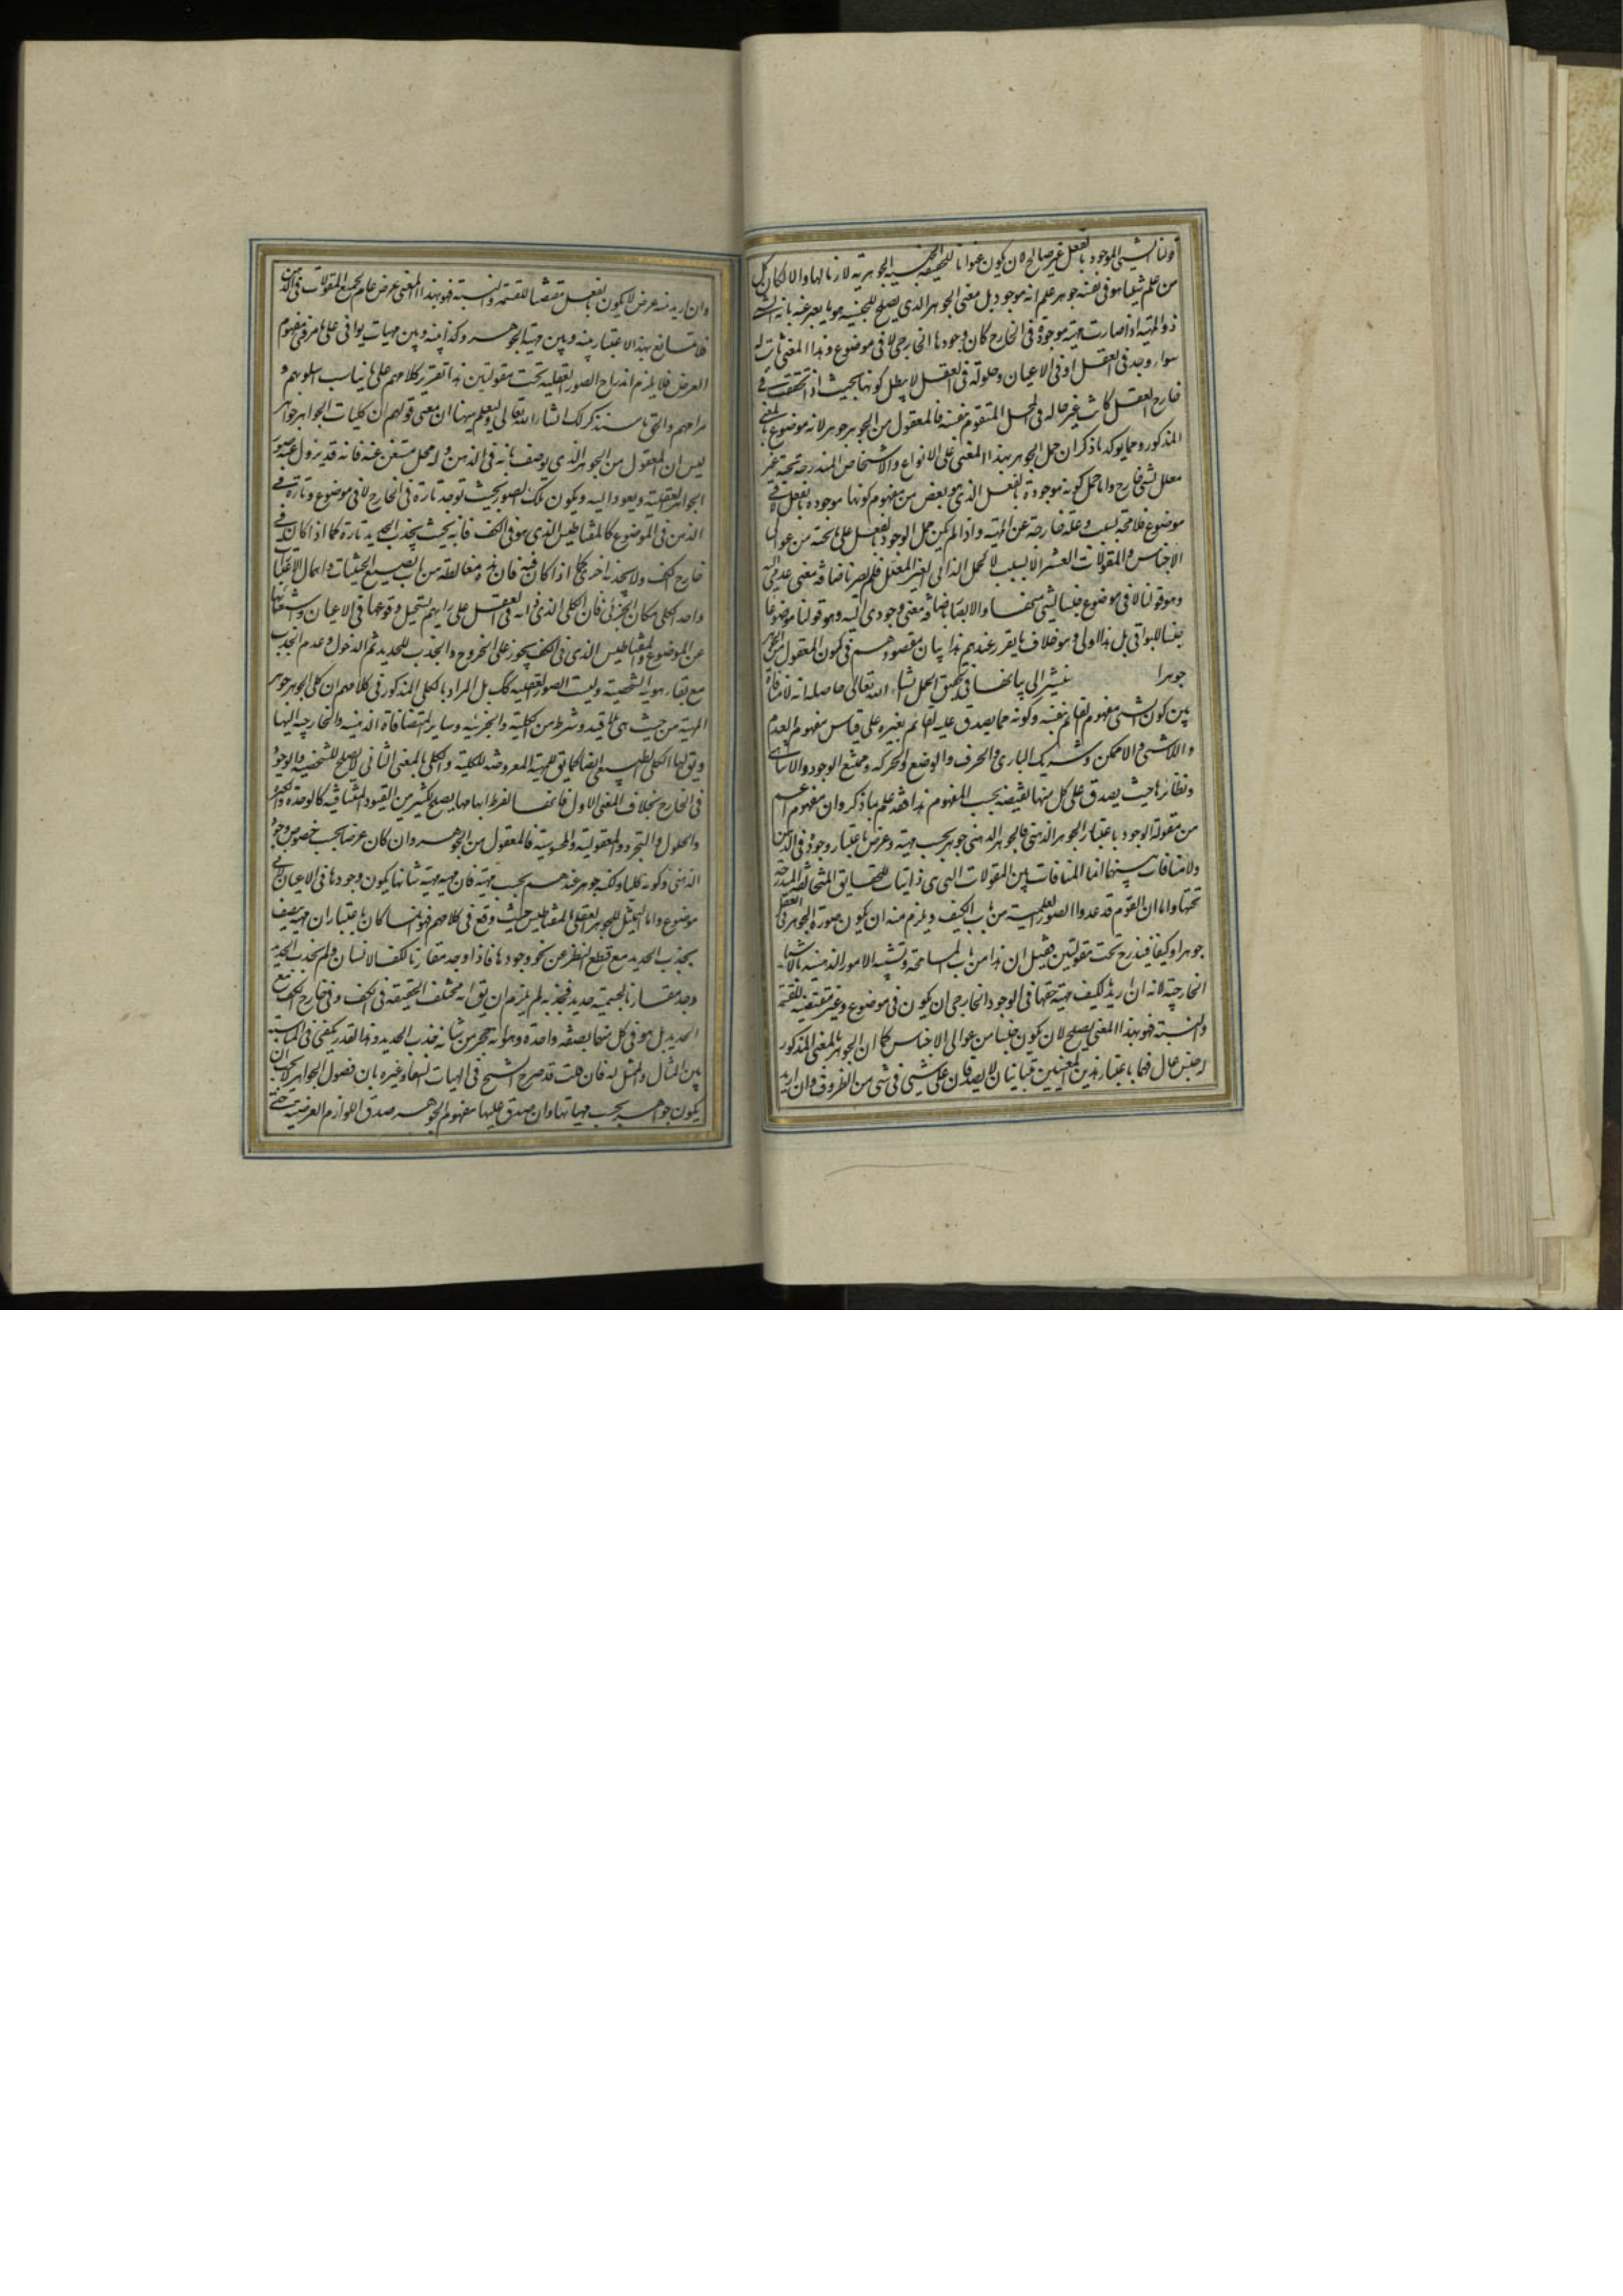 قولنا الشيء الموجود بالفعل غير صالح لان يكون عنوانا للحقيقة الجنسية الجوهرية لازما لها والا لكان كل
من علم شيئا هو في نفسه جوهر علم انه موجود بل معنى الجوهر الذي يصلح للجنسية هو ما يعبر عنه بانه الشيء
ذو المهية اذا صارت مهيته موجودة في الخارج كان وجودها الخارجي لا في موضوع وهذا المعنى ثابت له
سواء وجد في العقل او في الاعيان وحلوله في العقل لا يبطل كونها بحيث اذا تحققت في
خارج العقل كانت غير حاله في المحل المتقوم بنفسه فالمعقول من الجوهر جوهر لانه موضوع بالمعنى
المذكور ومما يوكد ما ذكر ان حمل الجوهر بهذا المعنى على الانواع والاشخاص المندرجة تحته غير
معلل بشيء خارج واما حمل كونه موجودة بالفعل الذي هو بعض من مفهوم كونها موجودة بالفعل لا في
موضوع فلا محة بسبب وعلة خارجة عن المهية واذا لم يكن حمل الوجود بالفعل على ما تحته من عوالي
الاجناس والمقولات العشر الا بسبب لا كحمل الذاتي الغير المعلل فلم يصر باضافة معنى عدمي اليه
وهو قولنا لا في موضوع جنسا لشيء منها والا لصار باضافة معنى وجودي اليه وهو قولنا موضوعا
جنسا للبواقي بل هذا اولى وهو خلاف ما يقرر عندهم هذا بيان مقصودهم في كون المعقول من الجوهر
جوهرا سنشير الى بيانها في تحقيق الحمل انشاء الله تعالى حاصله انه لا منافاة
بين كون الشيء مفهوم القائم بنفسه وكونه مما يصدق عليه القائم بغيره على قياس مفهوم العدم
واللاشيء واللاممكن وشريك الباري والحرف والوضع والحركة وممتنع الوجود واللاتناهي
ونظائرها حيث يصدق على كل منها نقيضه بحسب المفهوم هذا فقد علم بما ذكر وان مفهوم اعم
من مقولة الوجود باعتبار الجوهر الذهني فالجوهر الذهني جوهر بحسب مهيته وعرض باعتبار وجوده في الذهن
ولا منافات بينهما انما المنافات بين المقولات التي هي ذاتيات للحقايق المتخالفة المندرجة
تحتها واما ان القوم قد عدوا الصور العلمية من باب الكيف ويلزم منه ان يكون صورة الجوهر في العقل
جوهرا وكيفا فيندرج تحت مقولتين فقيل ان هذا من باب المسامحة وتشبيه الامور الذهنية بالاشياء
الخارجية لانه ان اريد بالكيف مهية حقها في الوجود الخارجي ان يكون في موضوع وغير مقتضية للقسمة
والنسبة فهو بهذا المعنى يصلح لان يكون جنسا من عوالي الاجناس كما ان الجوهر بالمعنى المذكور
له جنس عال فهما باعتبار هذين المعنيين متباينان لا يصدقان على شيء في شيء من الظروف وان اريد
وان اريد منه عرض لا يكون بالفعل مقتضيا للقسمة والنسبة فهو بهذا المعنى عرض عام لجميع المقولات في الذهن
فلا تمانع بهذا الاعتبار بينه وبين مهية الجوهر وكذا بينه وبين مهيات بواقي على ما مر في مفهوم
العرض فلا يلزم اندراج الصور العقلية تحت مقولتين هذا تقرير كلامهم على ما يناسب اسلوبهم و
مرامهم والحق ما سنذكر لك انشاء الله تعالى وليعلم ههنا ان معنى قولهم ان كليات الجواهر جواهر
ليس ان المعقول من الجوهر الذي يوصف بانه في الذهن وله محل مستغن عنه فانه قد يزول عنه صور
الجواهر العقلية ويعود اليه ويكون تلك الصور بحيث توجد تارة في الخارج لا في موضوع وتارة في
الذهن في الموضوع كالمقناطيس الذي هو في الكف فانه بحيث يجذب الحديد تارة كما اذا كان في
خارج الكف ولا يجذبه اخرى كما اذا كان فيه فان هذه مغالطة من باب تضييع الحيثيات واهمال الاعتبارات
واخذ الكلي مكان الجزئي فان الكلي الذي ذاته في العقل على رايهم يستحيل وقوعها في الاعيان واستغنائها
عن الموضوع والمقناطيس الذي في الكف يجوز على الخروج والجذب للحديد ثم الدخول وعدم الجذب
مع بقاء هويته الشخصية وليست الصور العقلية كك بل المراد بالكلي المذكور في كلامهم ان كلي الجوهر جوهر
المهية من حيث هي بلا قيد وشرط من الكلية والجزئية وساير المتضافاة الذهنية والخارجية اليها
ويق لها الكلي الطبيعي ايضا كما يق للمهية المعروضة للكلية والكلي بالمعنى الثاني لا يصلح للشخصية والوجود
في الخارج بخلاف المعنى الاول فانها لفرط ابهامها يصلح لكثير من القيود المتنافية كالوحدة والكثرة
والحلول والتجرد والمعقولية والمحسوسية فالمعقول من الجوهر وان كان عرضا بحسب خصوص وجوده
الذهني وكونه كليا ولكنه جوهر عندهم بحسب مهيته فان مهيته مهية شانها يكون وجودها في الاعيان لا في
موضوع واما التمثيل للجوهر العقلي بالمقناطيس حيث وقع في كلامهم فهو انما كان باعتبار ان مهيته يتصف
بجذب الحديد مع قطع النظر عن نحو وجودها فاذا وجد مقارنا لكف الانسان ولم يجذب الحديد
وجد مقارنا لجسمية حديد فجذبه لم يلزم ان يق انه مختلف الحقيقة في الكف وفي خارج الكف مع
الحديد بل هو في كل منهما بصفة واحدة وهو انه حجر من شانه جذب الحديد وهذا القدر يكفي في المناسبة
بين المثال والممثل له فان قلت قد صرح الشيخ في الهيات الشفاء وغيره بان فصول الجواهر لا يجب ان
يكون جواهر بحسب مهياتها وان صدق عليها مفهوم الجوهر صدق اللوازم العرضية حتى